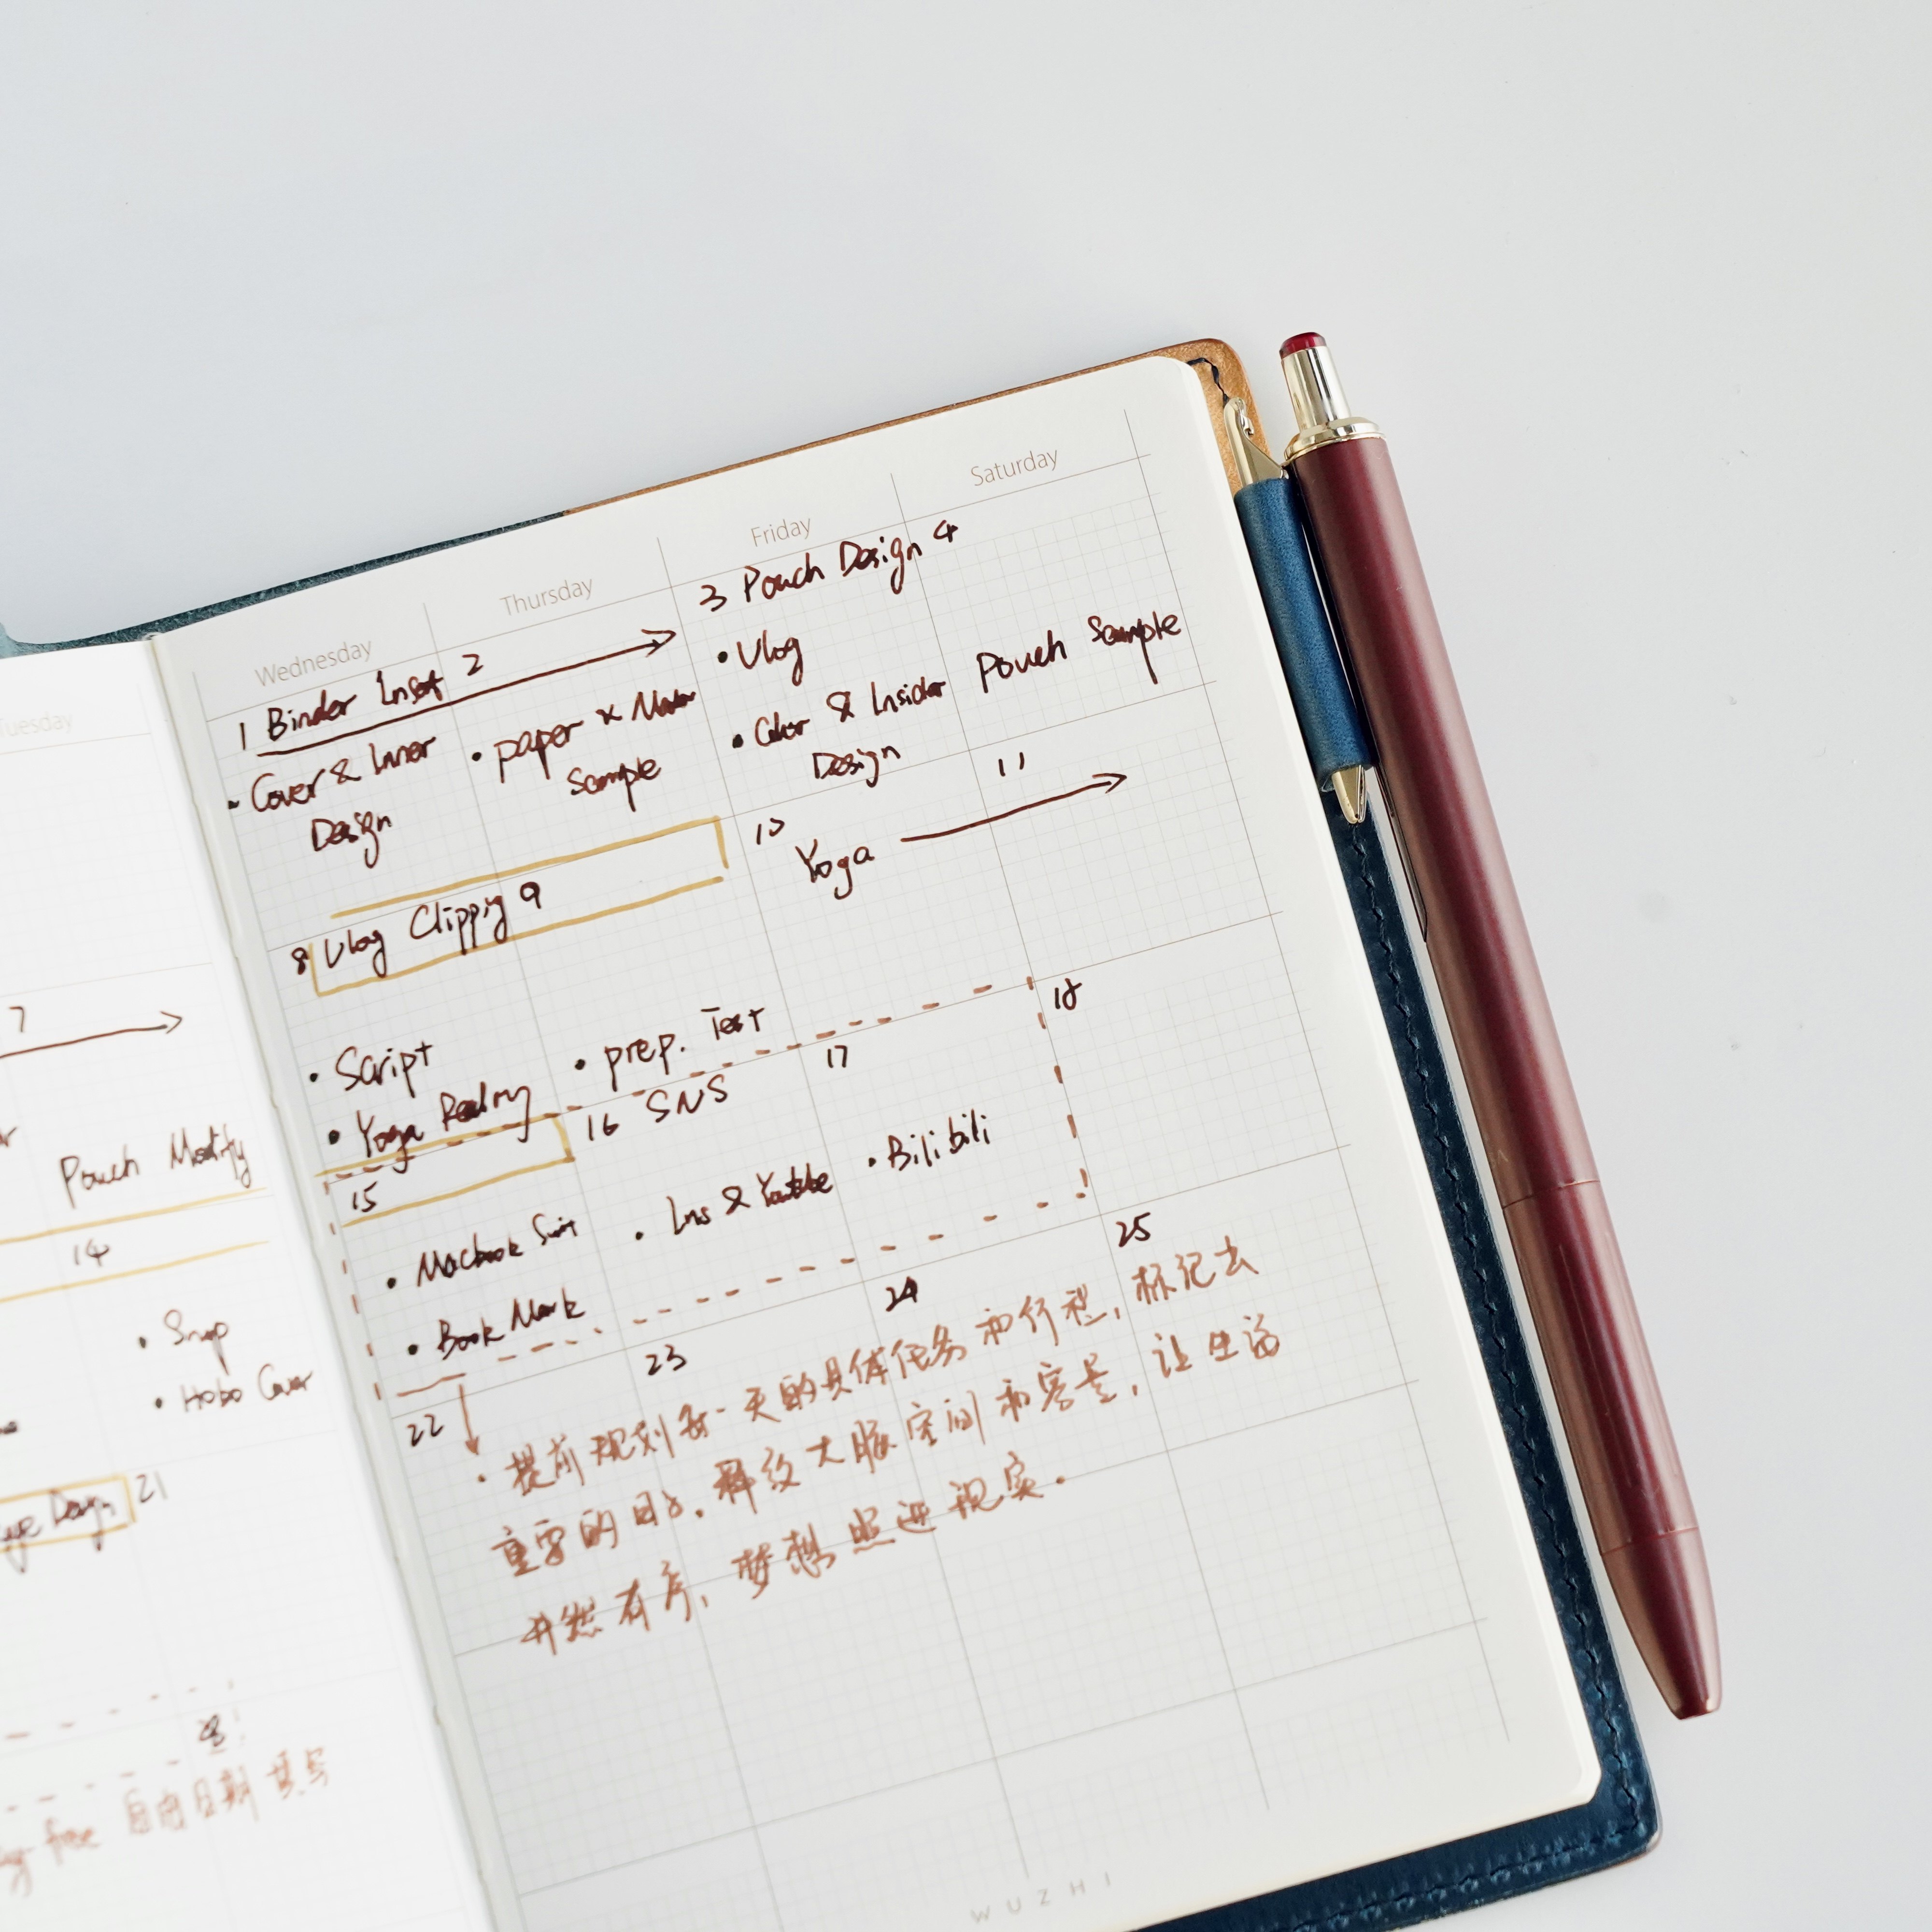 Tuesday
7
Pouch Modify
14
• Snap
• Hobo Cover
Design 21
free 自由日期填写
Wednesday
Thursday
Friday
Saturday
1 Binder Inset 2
3 Pouch Design 4
• Cover & Inner
Design
• paper &
Sample
• Vlog
• Color & Insider
Design
Pouch Sample
8 Vlog Clippig 9
10
Yoga
11
• Script
• Yoga
• prep. Test
15
16 SNS
17
18
• Macbook
• Book Mark
• Ins & Youtube
• Bilibili
22
23
24
25
• 提前规划每一天的具体任务和行程，标记去
重要的日子．释放大脑空间和容量，让生活
井然有序，梦想照进现实．
WUZHI